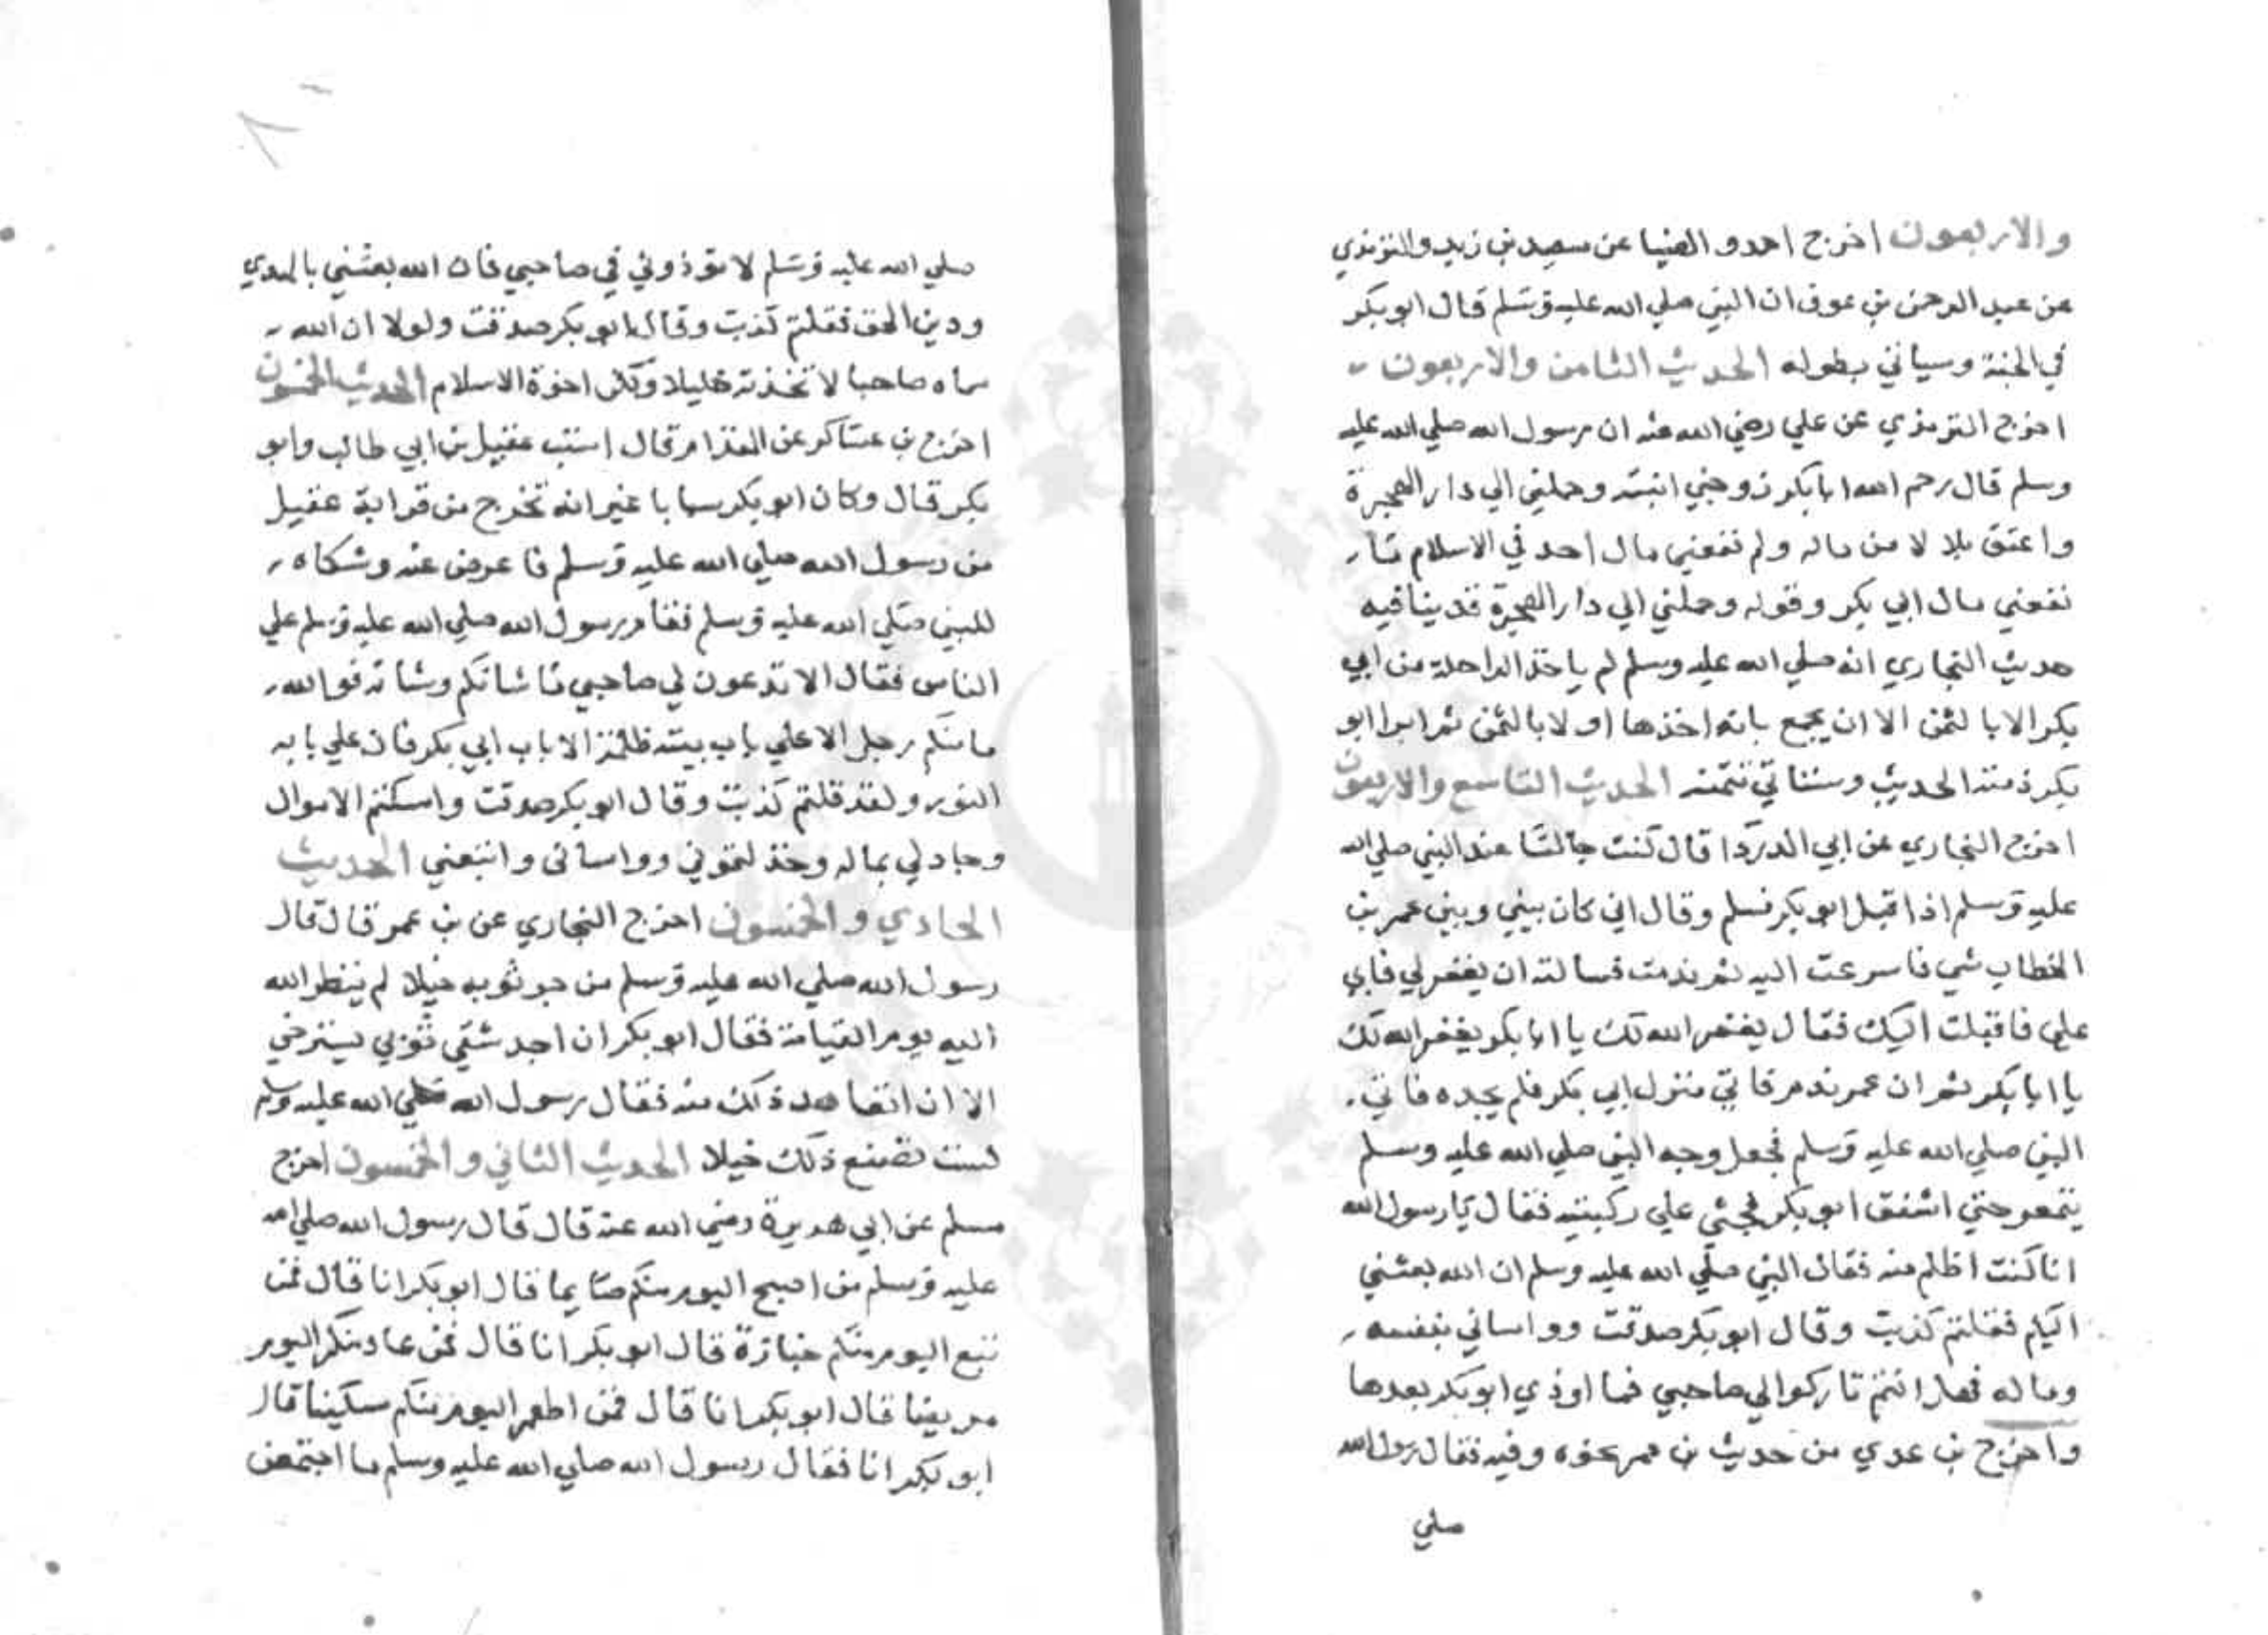 والاربعون اخرج احمد و الضيا عن سعيد بن زيد والترمذي
عن عبد الرحمن بن عوف ان النبي صلي الله عليه وسلم قال ابو بكر
في الجنة وسياتي بطوله الحديث الثامن والاربعون
اخرج الترمذي عن علي رضي الله عنه ان رسول الله صلي الله عليه
وسلم قال رحم الله ابا بكر زوجني ابنته وحملني الي دار الهجرة
واعتق بلالا من ماله ولم نفعني مال احد في الاسلام ما
نفعني مال ابي بكر وقوله وحملني الي دار الهجرة قد ينافيه
حديث البخاري انه صلي الله عليه وسلم لم ياخذ الراحلة من ابي
بكر الا بالثمن الا ان يجمع بانه اخذها اولا بالثمن ثم ابرا ابو
بكر ذمته الحديث وستاتي تتمته الحديث التاسع والاربعون
اخرج البخاري عن ابي الدردا قال كنت جالسا عند النبي صلي الله
عليه وسلم اذ اقبل ابو بكر فسلم وقال اني كان بيني وبين عمر بن
الخطاب شي فاسرعت اليه ثم ندمت فسالته ان يغفر لي فابي
علي فاقبلت اليك فقال يغفر الله لك يا ابا بكر يغفر الله لك
يا ابا بكر ثم ان عمر ندم فاتي منزل ابي بكر فلم يجده فاتي
النبي صلي الله عليه وسلم فجعل وجه النبي صلي الله عليه وسلم
يتمعر حتي اشفق ابو بكر فجثي علي ركبتيه فقال يا رسول الله
انا كنت اظلم منه فقال النبي صلي الله عليه وسلم ان الله بعثني
اليكم فقلتم كذبت وقال ابو بكر صدقت وواساني بنفسه
وماله فهل انتم تاركوا لي صاحبي فما اوذي ابو بكر بعدها
واخرج بن عدي من حديث بن عمر نحوه وفيه فقال رسول الله
صلي
صلي الله عليه وسلم لا توذوني في صاحبي فان الله بعثني بالهدي
ودين الحق فقلتم كذبت وقال ابو بكر صدقت ولولا ان الله
سماه صاحبا لاتخذته خليلا ولكن اخوة الاسلام الحديث الخمسون
اخرج بن عساكر عن المقدام قال استب عقيل بن ابي طالب وابو
بكر قال وكان ابو بكر سبابا غير انه تخرج من قرابة عقيل
من رسول الله صلي الله عليه وسلم فاعرض عنه وشكاه
للنبي صلي الله عليه وسلم فقام رسول الله صلي الله عليه وسلم علي
الناس فقال الا تدعون لي صاحبي ما شانكم وشانه فوالله
ما منكم رجل الا علي باب بيته ظلمة الا باب ابي بكر فان علي بابه
النور ولقد قلتم كذبت وقال ابو بكر صدقت وامسكتم الاموال
وجاد لي بماله وخذلتموني وواساني واتبعني الحديث
الحادي والخمسون اخرج البخاري عن بن عمر قال قال
رسول الله صلي الله عليه وسلم من جر ثوبه خيلا لم ينظر الله
اليه يوم القيامة فقال ابو بكر ان احد شقي ثوبي يسترخي
الا ان اتعاهد ذلك منه فقال رسول الله صلي الله عليه وسلم
لست تصنع ذلك خيلا الحديث الثاني والخمسون اخرج
مسلم عن ابي هريرة رضي الله عنه قال قال رسول الله صلي الله
عليه وسلم من اصبح اليوم منكم صايما قال ابو بكر انا قال فمن
تبع اليوم منكم جنازة قال ابو بكر انا قال فمن عاد منكم اليوم
مريضا قال ابو بكر انا قال فمن اطعم اليوم منكم مسكينا قال
ابو بكر انا فقال رسول الله صلي الله عليه وسلم ما اجتمعن